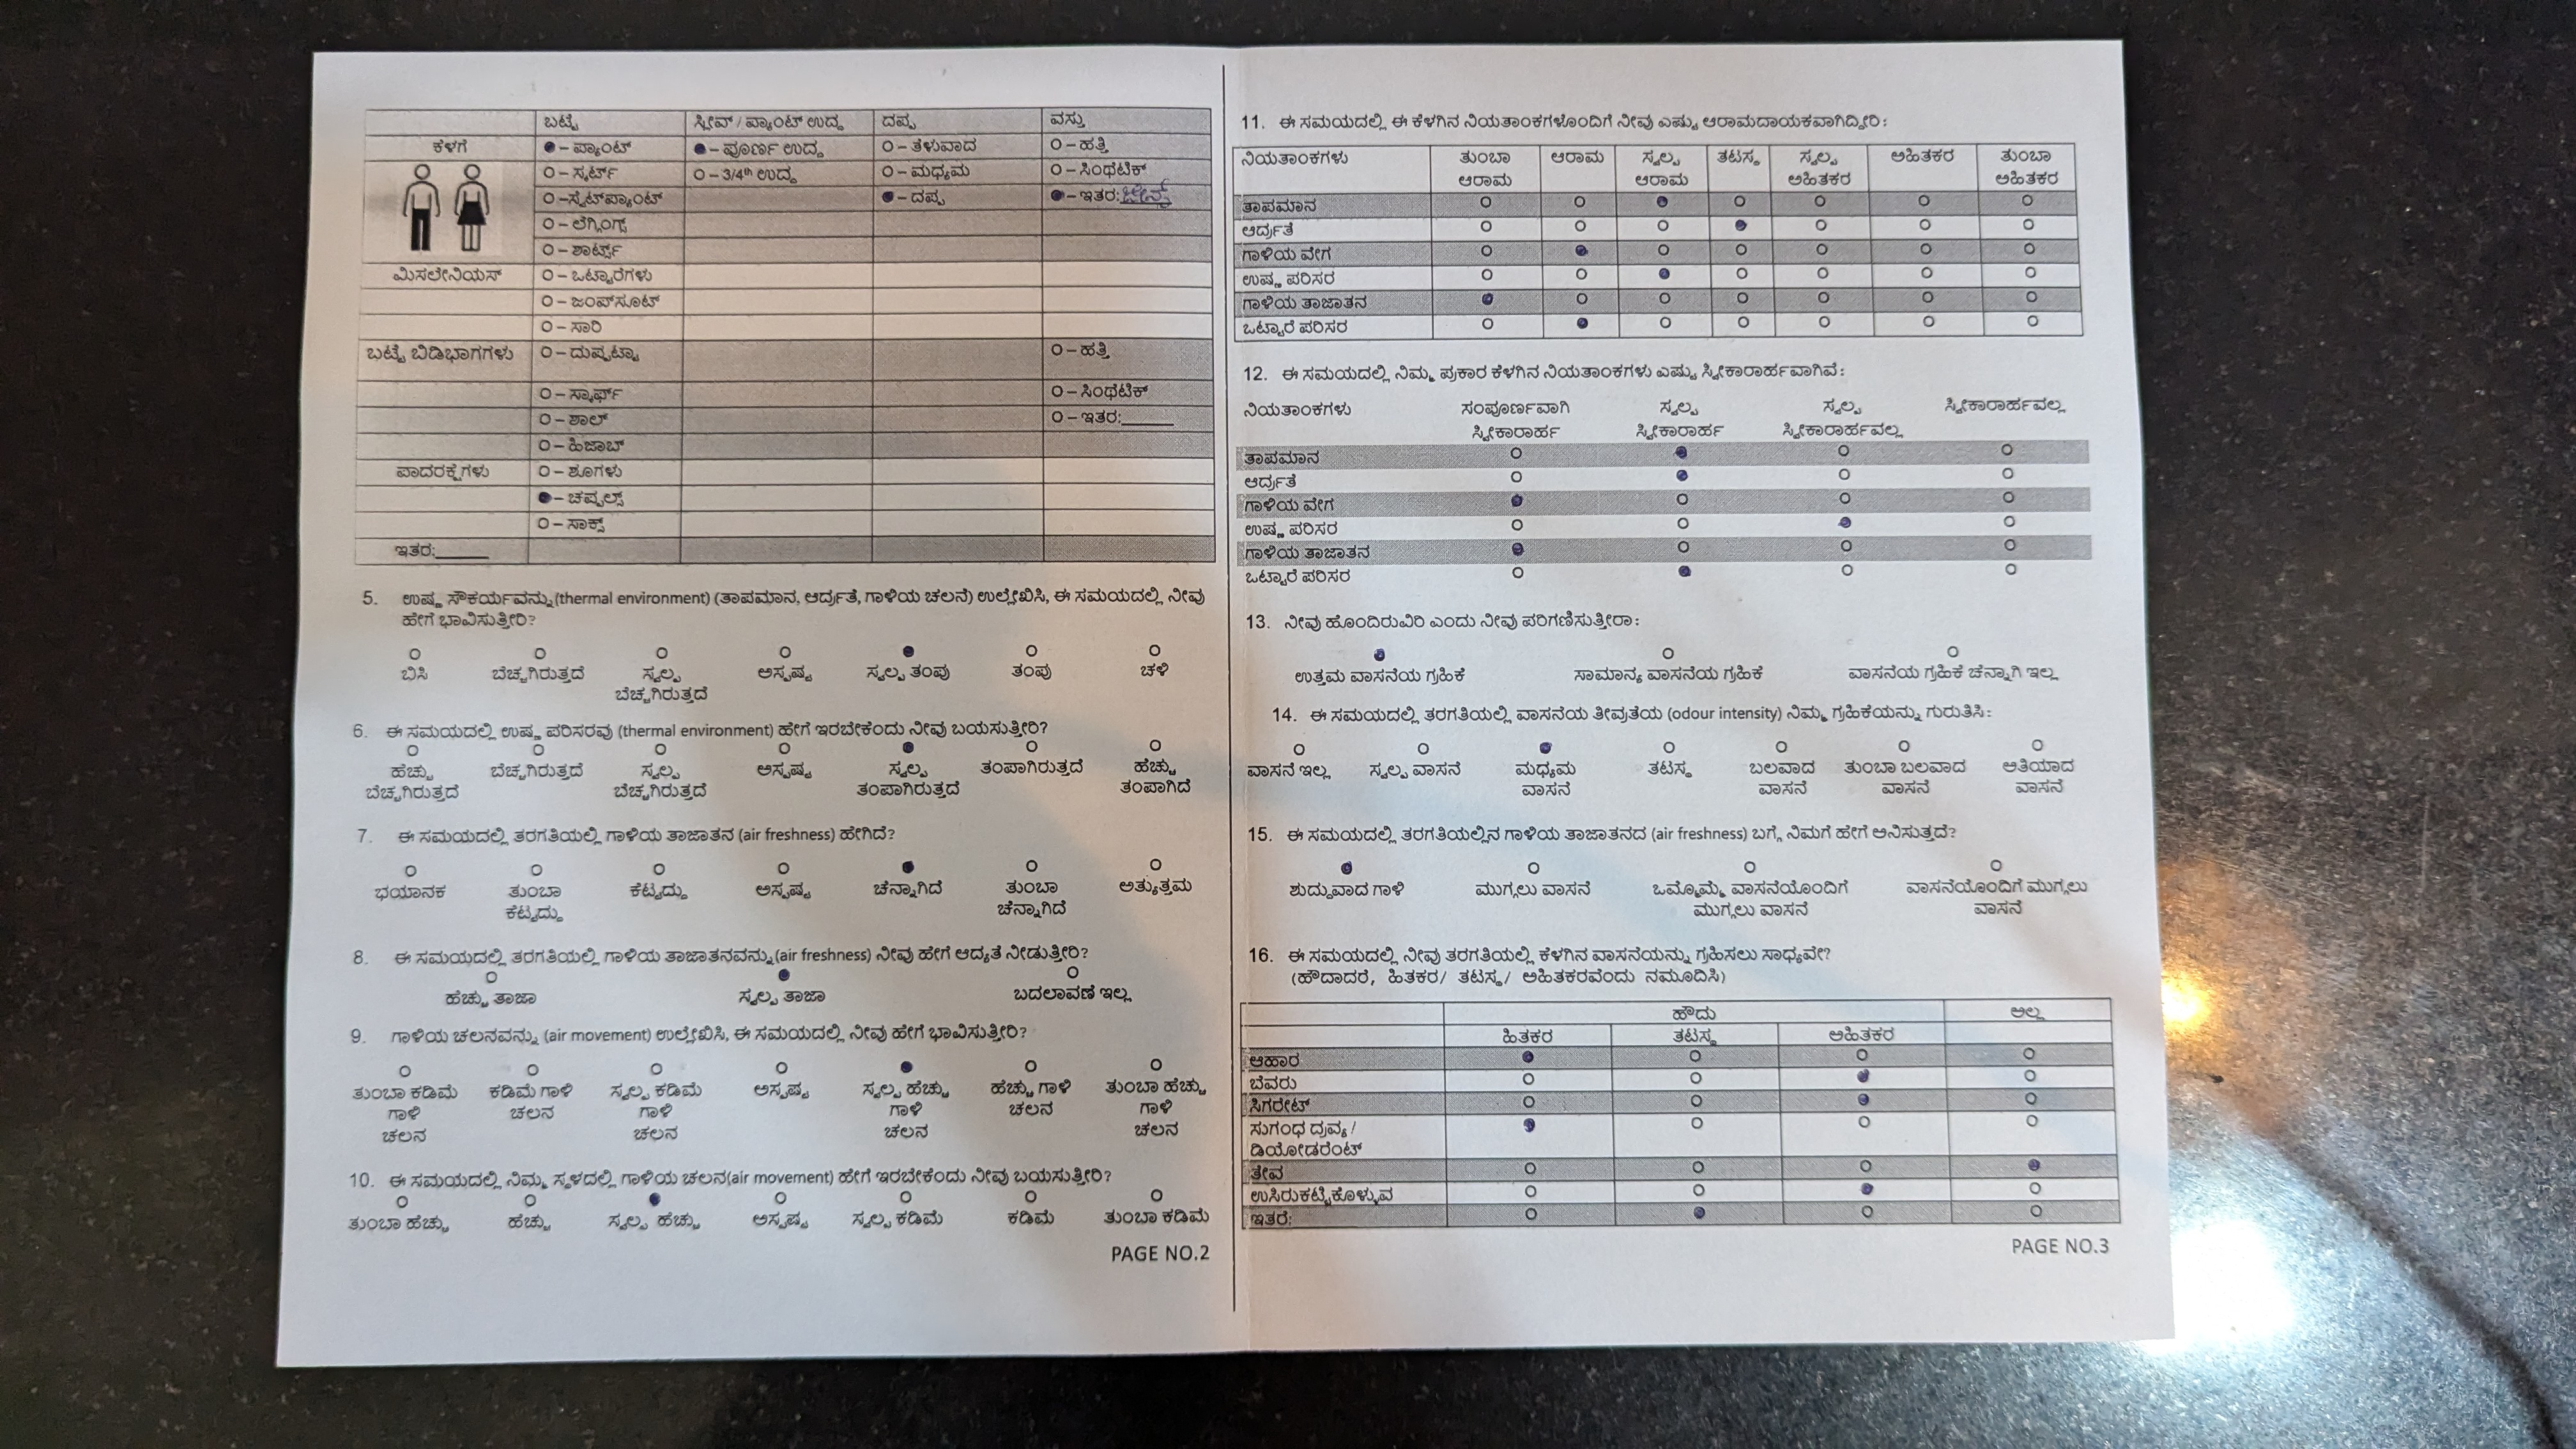 ಬಟ್ಟೆ ಸ್ಲೀವ್ / ಪ್ಯಾಂಟ್ ಉದ್ದ ದಪ್ಪ ವಸ್ತು
ಕೆಳಗೆ ●– ಪ್ಯಾಂಟ್ ●– ಪೂರ್ಣ ಉದ್ದ O – ತೆಳುವಾದ O – ಹತ್ತಿ
O – ಸ್ಕರ್ಟ್ O – 3/4th ಉದ್ದ O – ಮಧ್ಯಮ O – ಸಿಂಥಟಿಕ್
O –ಸ್ವೆಟ್‌ಪ್ಯಾಂಟ್ ●– ದಪ್ಪ ●– ಇತರ: ಜೀನ್ಸ್
O – ಲೆಗ್ಗಿಂಗ್ಸ್
O – ಶಾರ್ಟ್ಸ್
ಮಿಸಲೇನಿಯಸ್ O – ಒಟ್ಟಾರೆಗಳು
O – ಜಂಪ್‌ಸೂಟ್
O – ಸಾರಿ
ಬಟ್ಟೆ ಬಿಡಿಭಾಗಗಳು O – ದುಪ್ಪಟ್ಟಾ O – ಹತ್ತಿ
O – ಸ್ಕಾರ್ಫ್ O – ಸಿಂಥಟಿಕ್
O – ಶಾಲ್ O – ಇತರ:______
O – ಹಿಜಾಬ್
ಪಾದರಕ್ಷೆಗಳು O – ಶೂಗಳು
●– ಚಪ್ಪಲ್ಸ್
O – ಸಾಕ್ಸ್
ಇತರ:______
5. ಉಷ್ಣ ಸೌಕರ್ಯವನ್ನು (thermal environment) (ತಾಪಮಾನ, ಆರ್ದ್ರತೆ, ಗಾಳಿಯ ಚಲನೆ) ಉಲ್ಲೇಖಿಸಿ, ಈ ಸಮಯದಲ್ಲಿ ನೀವು
ಹೇಗೆ ಭಾವಿಸುತ್ತೀರಿ?
ಬಿಸಿ ಬೆಚ್ಚಗಿರುತ್ತದೆ ಸ್ವಲ್ಪ ಅಸ್ಪಷ್ಟ ಸ್ವಲ್ಪ ತಂಪು ತಂಪು ಚಳಿ
ಬೆಚ್ಚಗಿರುತ್ತದೆ
6. ಈ ಸಮಯದಲ್ಲಿ ಉಷ್ಣ ಪರಿಸರವು (thermal environment) ಹೇಗೆ ಇರಬೇಕೆಂದು ನೀವು ಬಯಸುತ್ತೀರಿ?
ಹೆಚ್ಚು ಬೆಚ್ಚಗಿರುತ್ತದೆ ಸ್ವಲ್ಪ ಅಸ್ಪಷ್ಟ ಸ್ವಲ್ಪ ತಂಪಾಗಿರುತ್ತದೆ ಹೆಚ್ಚು
ಬೆಚ್ಚಗಿರುತ್ತದೆ ಬೆಚ್ಚಗಿರುತ್ತದೆ ತಂಪಾಗಿರುತ್ತದೆ ತಂಪಾಗಿದೆ
7. ಈ ಸಮಯದಲ್ಲಿ ತರಗತಿಯಲ್ಲಿ ಗಾಳಿಯ ತಾಜಾತನ (air freshness) ಹೇಗಿದೆ?
ಭಯಾನಕ ತುಂಬಾ ಕೆಟ್ಟದ್ದು ಅಸ್ಪಷ್ಟ ಚೆನ್ನಾಗಿದೆ ತುಂಬಾ ಅತ್ಯುತ್ತಮ
ಕೆಟ್ಟದ್ದು ಚೆನ್ನಾಗಿದೆ
8. ಈ ಸಮಯದಲ್ಲಿ ತರಗತಿಯಲ್ಲಿ ಗಾಳಿಯ ತಾಜಾತನವನ್ನು (air freshness) ನೀವು ಹೇಗೆ ಆದ್ಯತೆ ನೀಡುತ್ತೀರಿ?
ಹೆಚ್ಚು ತಾಜಾ ಸ್ವಲ್ಪ ತಾಜಾ ಬದಲಾವಣೆ ಇಲ್ಲ
9. ಗಾಳಿಯ ಚಲನವನ್ನು (air movement) ಉಲ್ಲೇಖಿಸಿ, ಈ ಸಮಯದಲ್ಲಿ ನೀವು ಹೇಗೆ ಭಾವಿಸುತ್ತೀರಿ?
ತುಂಬಾ ಕಡಿಮೆ ಕಡಿಮೆ ಗಾಳಿ ಸ್ವಲ್ಪ ಕಡಿಮೆ ಅಸ್ಪಷ್ಟ ಸ್ವಲ್ಪ ಹೆಚ್ಚು ಹೆಚ್ಚು ಗಾಳಿ ತುಂಬಾ ಹೆಚ್ಚು
ಗಾಳಿ ಚಲನ ಗಾಳಿ ಗಾಳಿ ಚಲನ ಗಾಳಿ
ಚಲನ ಚಲನ ಚಲನ ಚಲನ
10. ಈ ಸಮಯದಲ್ಲಿ ನಿಮ್ಮ ಸ್ಥಳದಲ್ಲಿ ಗಾಳಿಯ ಚಲನ(air movement) ಹೇಗೆ ಇರಬೇಕೆಂದು ನೀವು ಬಯಸುತ್ತೀರಿ?
ತುಂಬಾ ಹೆಚ್ಚು ಹೆಚ್ಚು ಸ್ವಲ್ಪ ಹೆಚ್ಚು ಅಸ್ಪಷ್ಟ ಸ್ವಲ್ಪ ಕಡಿಮೆ ಕಡಿಮೆ ತುಂಬಾ ಕಡಿಮೆ
PAGE NO.2
11. ಈ ಸಮಯದಲ್ಲಿ ಈ ಕೆಳಗಿನ ನಿಯತಾಂಕಗಳೊಂದಿಗೆ ನೀವು ಎಷ್ಟು ಆರಾಮದಾಯಕವಾಗಿದ್ದೀರಿ:
ನಿಯತಾಂಕಗಳು ತುಂಬಾ ಆರಾಮ ಸ್ವಲ್ಪ ತಟಸ್ಥ ಸ್ವಲ್ಪ ಅಹಿತಕರ ತುಂಬಾ
ಆರಾಮ ಆರಾಮ ಅಹಿತಕರ ಅಹಿತಕರ
ತಾಪಮಾನ
ಆರ್ದ್ರತೆ
ಗಾಳಿಯ ವೇಗ
ಉಷ್ಣ ಪರಿಸರ
ಗಾಳಿಯ ತಾಜಾತನ
ಒಟ್ಟಾರೆ ಪರಿಸರ
12. ಈ ಸಮಯದಲ್ಲಿ ನಿಮ್ಮ ಪ್ರಕಾರ ಕೆಳಗಿನ ನಿಯತಾಂಕಗಳು ಎಷ್ಟು ಸ್ವೀಕಾರಾರ್ಹವಾಗಿವೆ:
ನಿಯತಾಂಕಗಳು ಸಂಪೂರ್ಣವಾಗಿ ಸ್ವಲ್ಪ ಸ್ವಲ್ಪ ಸ್ವೀಕಾರಾರ್ಹವಲ್ಲ
ಸ್ವೀಕಾರಾರ್ಹ ಸ್ವೀಕಾರಾರ್ಹ ಸ್ವೀಕಾರಾರ್ಹವಲ್ಲ
ತಾಪಮಾನ
ಆರ್ದ್ರತೆ
ಗಾಳಿಯ ವೇಗ
ಉಷ್ಣ ಪರಿಸರ
ಗಾಳಿಯ ತಾಜಾತನ
ಒಟ್ಟಾರೆ ಪರಿಸರ
13. ನೀವು ಹೊಂದಿರುವಿರಿ ಎಂದು ನೀವು ಪರಿಗಣಿಸುತ್ತೀರಾ:
ಉತ್ತಮ ವಾಸನೆಯ ಗ್ರಹಿಕೆ ಸಾಮಾನ್ಯ ವಾಸನೆಯ ಗ್ರಹಿಕೆ ವಾಸನೆಯ ಗ್ರಹಿಕೆ ಚೆನ್ನಾಗಿ ಇಲ್ಲ
14. ಈ ಸಮಯದಲ್ಲಿ ತರಗತಿಯಲ್ಲಿ ವಾಸನೆಯ ತೀವ್ರತೆಯ (odour intensity) ನಿಮ್ಮ ಗ್ರಹಿಕೆಯನ್ನು ಗುರುತಿಸಿ:
ವಾಸನೆ ಇಲ್ಲ ಸ್ವಲ್ಪ ವಾಸನೆ ಮಧ್ಯಮ ತಟಸ್ಥ ಬಲವಾದ ತುಂಬಾ ಬಲವಾದ ಅತಿಯಾದ
ವಾಸನೆ ವಾಸನೆ ವಾಸನೆ ವಾಸನೆ
15. ಈ ಸಮಯದಲ್ಲಿ ತರಗತಿಯಲ್ಲಿನ ಗಾಳಿಯ ತಾಜಾತನದ (air freshness) ಬಗ್ಗೆ ನಿಮಗೆ ಹೇಗೆ ಅನಿಸುತ್ತದೆ?
ಶುದ್ಧವಾದ ಗಾಳಿ ಮುಗ್ಗಲು ವಾಸನೆ ಒಮ್ಮೊಮ್ಮೆ ವಾಸನೆಯೊಂದಿಗೆ ವಾಸನೆಯೊಂದಿಗೆ ಮುಗ್ಗಲು
ಮುಗ್ಗಲು ವಾಸನೆ ವಾಸನೆ
16. ಈ ಸಮಯದಲ್ಲಿ ನೀವು ತರಗತಿಯಲ್ಲಿ ಕೆಳಗಿನ ವಾಸನೆಯನ್ನು ಗ್ರಹಿಸಲು ಸಾಧ್ಯವೇ?
(ಹೌದಾದರೆ, ಹಿತಕರ/ ತಟಸ್ಥ/ ಅಹಿತಕರವೆಂದು ನಮೂದಿಸಿ)
ಹೌದು ಅಲ್ಲ
ಹಿತಕರ ತಟಸ್ಥ ಅಹಿತಕರ
ಆಹಾರ
ಬೆವರು
ಸಿಗರೇಟ್
ಸುಗಂಧ ದ್ರವ್ಯ /
ಡಿಯೋಡರೆಂಟ್
ತೇವ
ಉಸಿರುಕಟ್ಟಿಕೊಳ್ಳುವ
ಇತರೆ:
PAGE NO.3